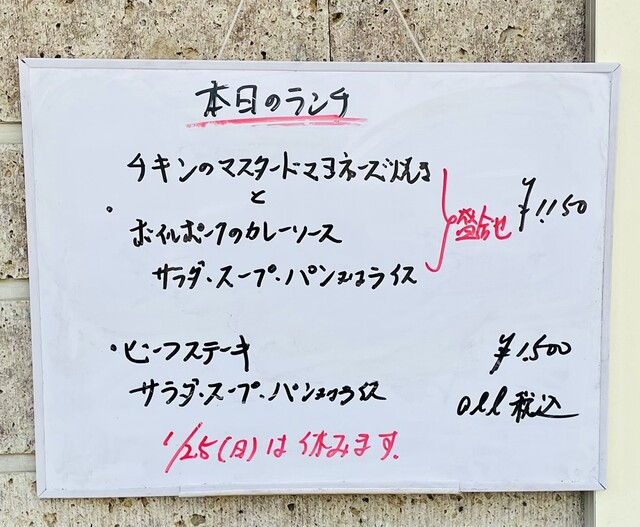 本日のランチ
チキンのマスタードマヨネーズ焼き
と
・ボイルポークのカレーソース
盛合せ ¥1,150
サラダ・スープ・パン又はライス
・ビーフステーキ ¥1,500
サラダ・スープ・パン又はライス
all 税込
1/25(日)は休みます.